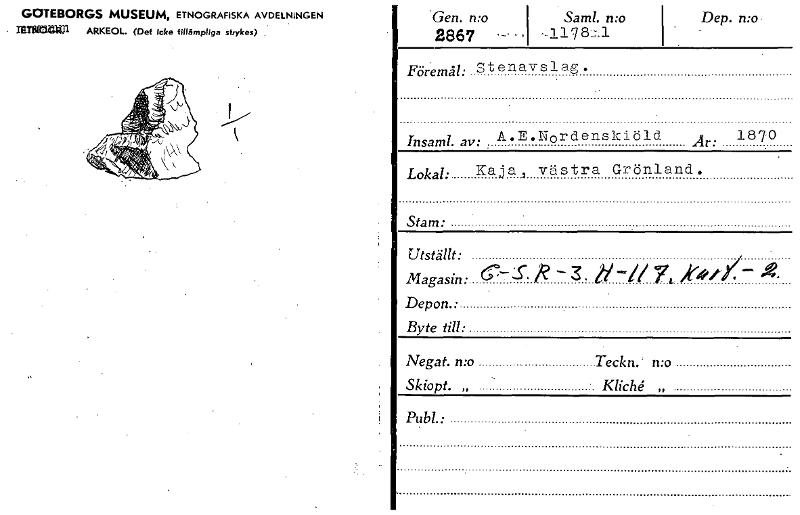 GÖTEBORGS MUSEUM, ETNOGRAFISKA AVDELNINGEN
ARKEOL. (Det icke tillämpliga strykes)
1/1
Gen. n:o Saml. n:o Dep. n:o
2867 1178:1
Föremål: Stenavslag.
Insaml. av: A.E.Nordenskiöld År: 1870
Lokal: Kaja, västra Grönland.
Stam:
Utställt:
Magasin: G-S. R-3. H-117, Kart.-2.
Depon.:
Byte till:
Negat. n:o Teckn. n:o
Skiopt. „ Kliché „
Publ.: